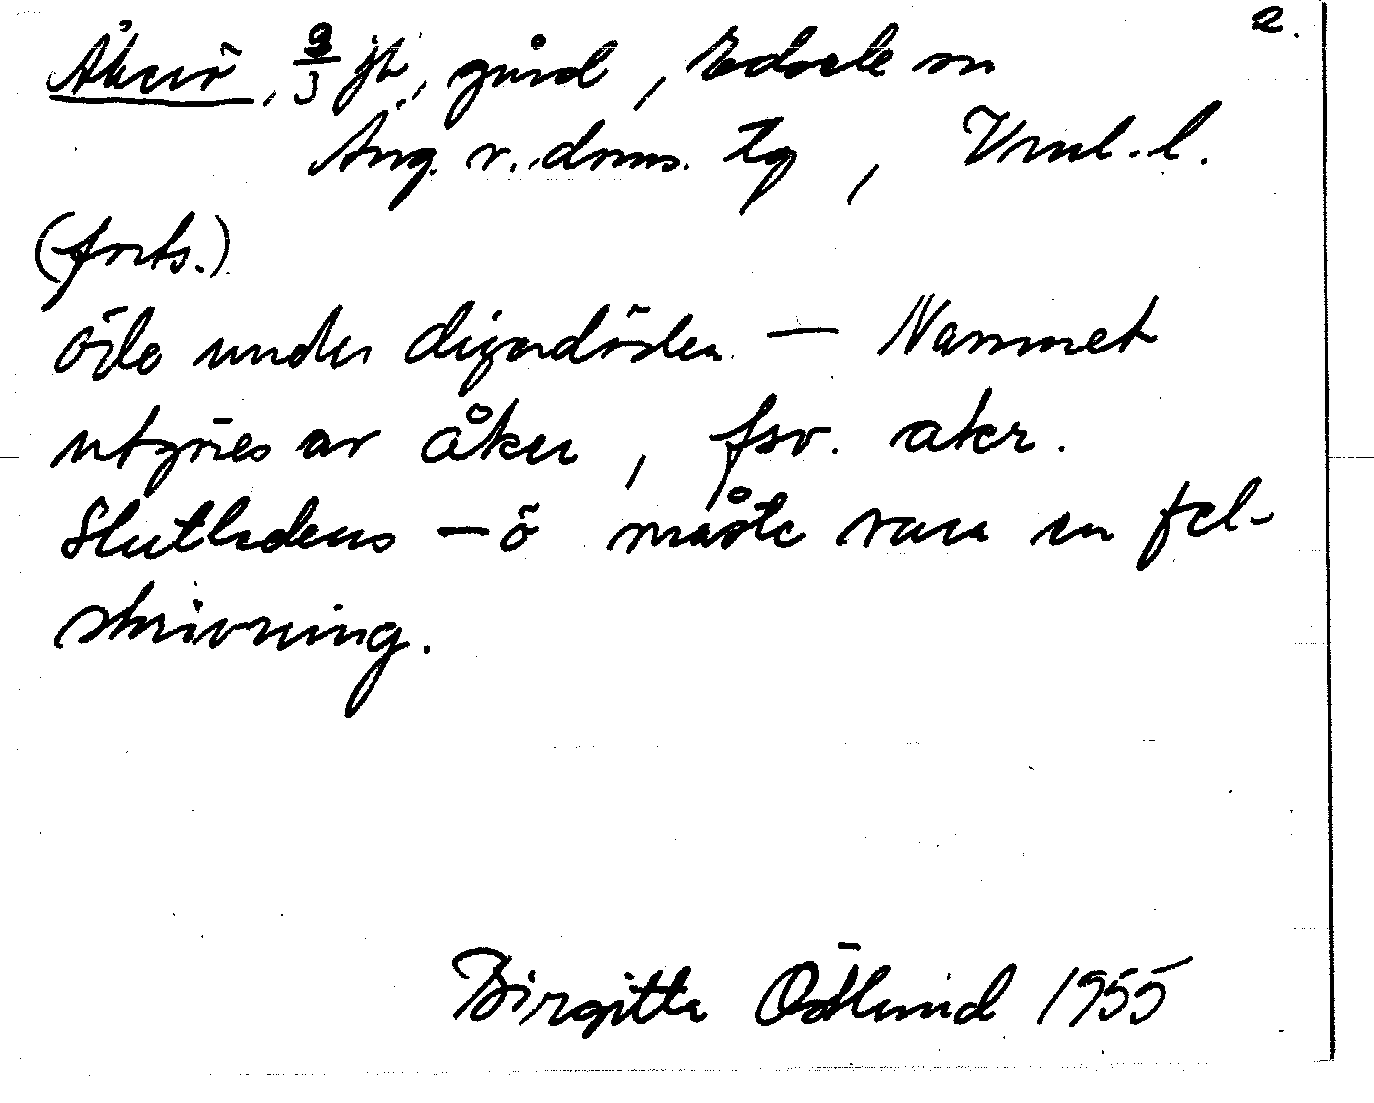 2.
Åkerö, 2/3 jb., gård, Edsele sn
Ång. v. doms. tg, Vnl. l.
(forts.)
öde under digerdöden. — Namnet
utgöres av åker, fsv. aker.
Slutledens -ö måste vara en fel-
skrivning.
Birgitta Östlund 1955